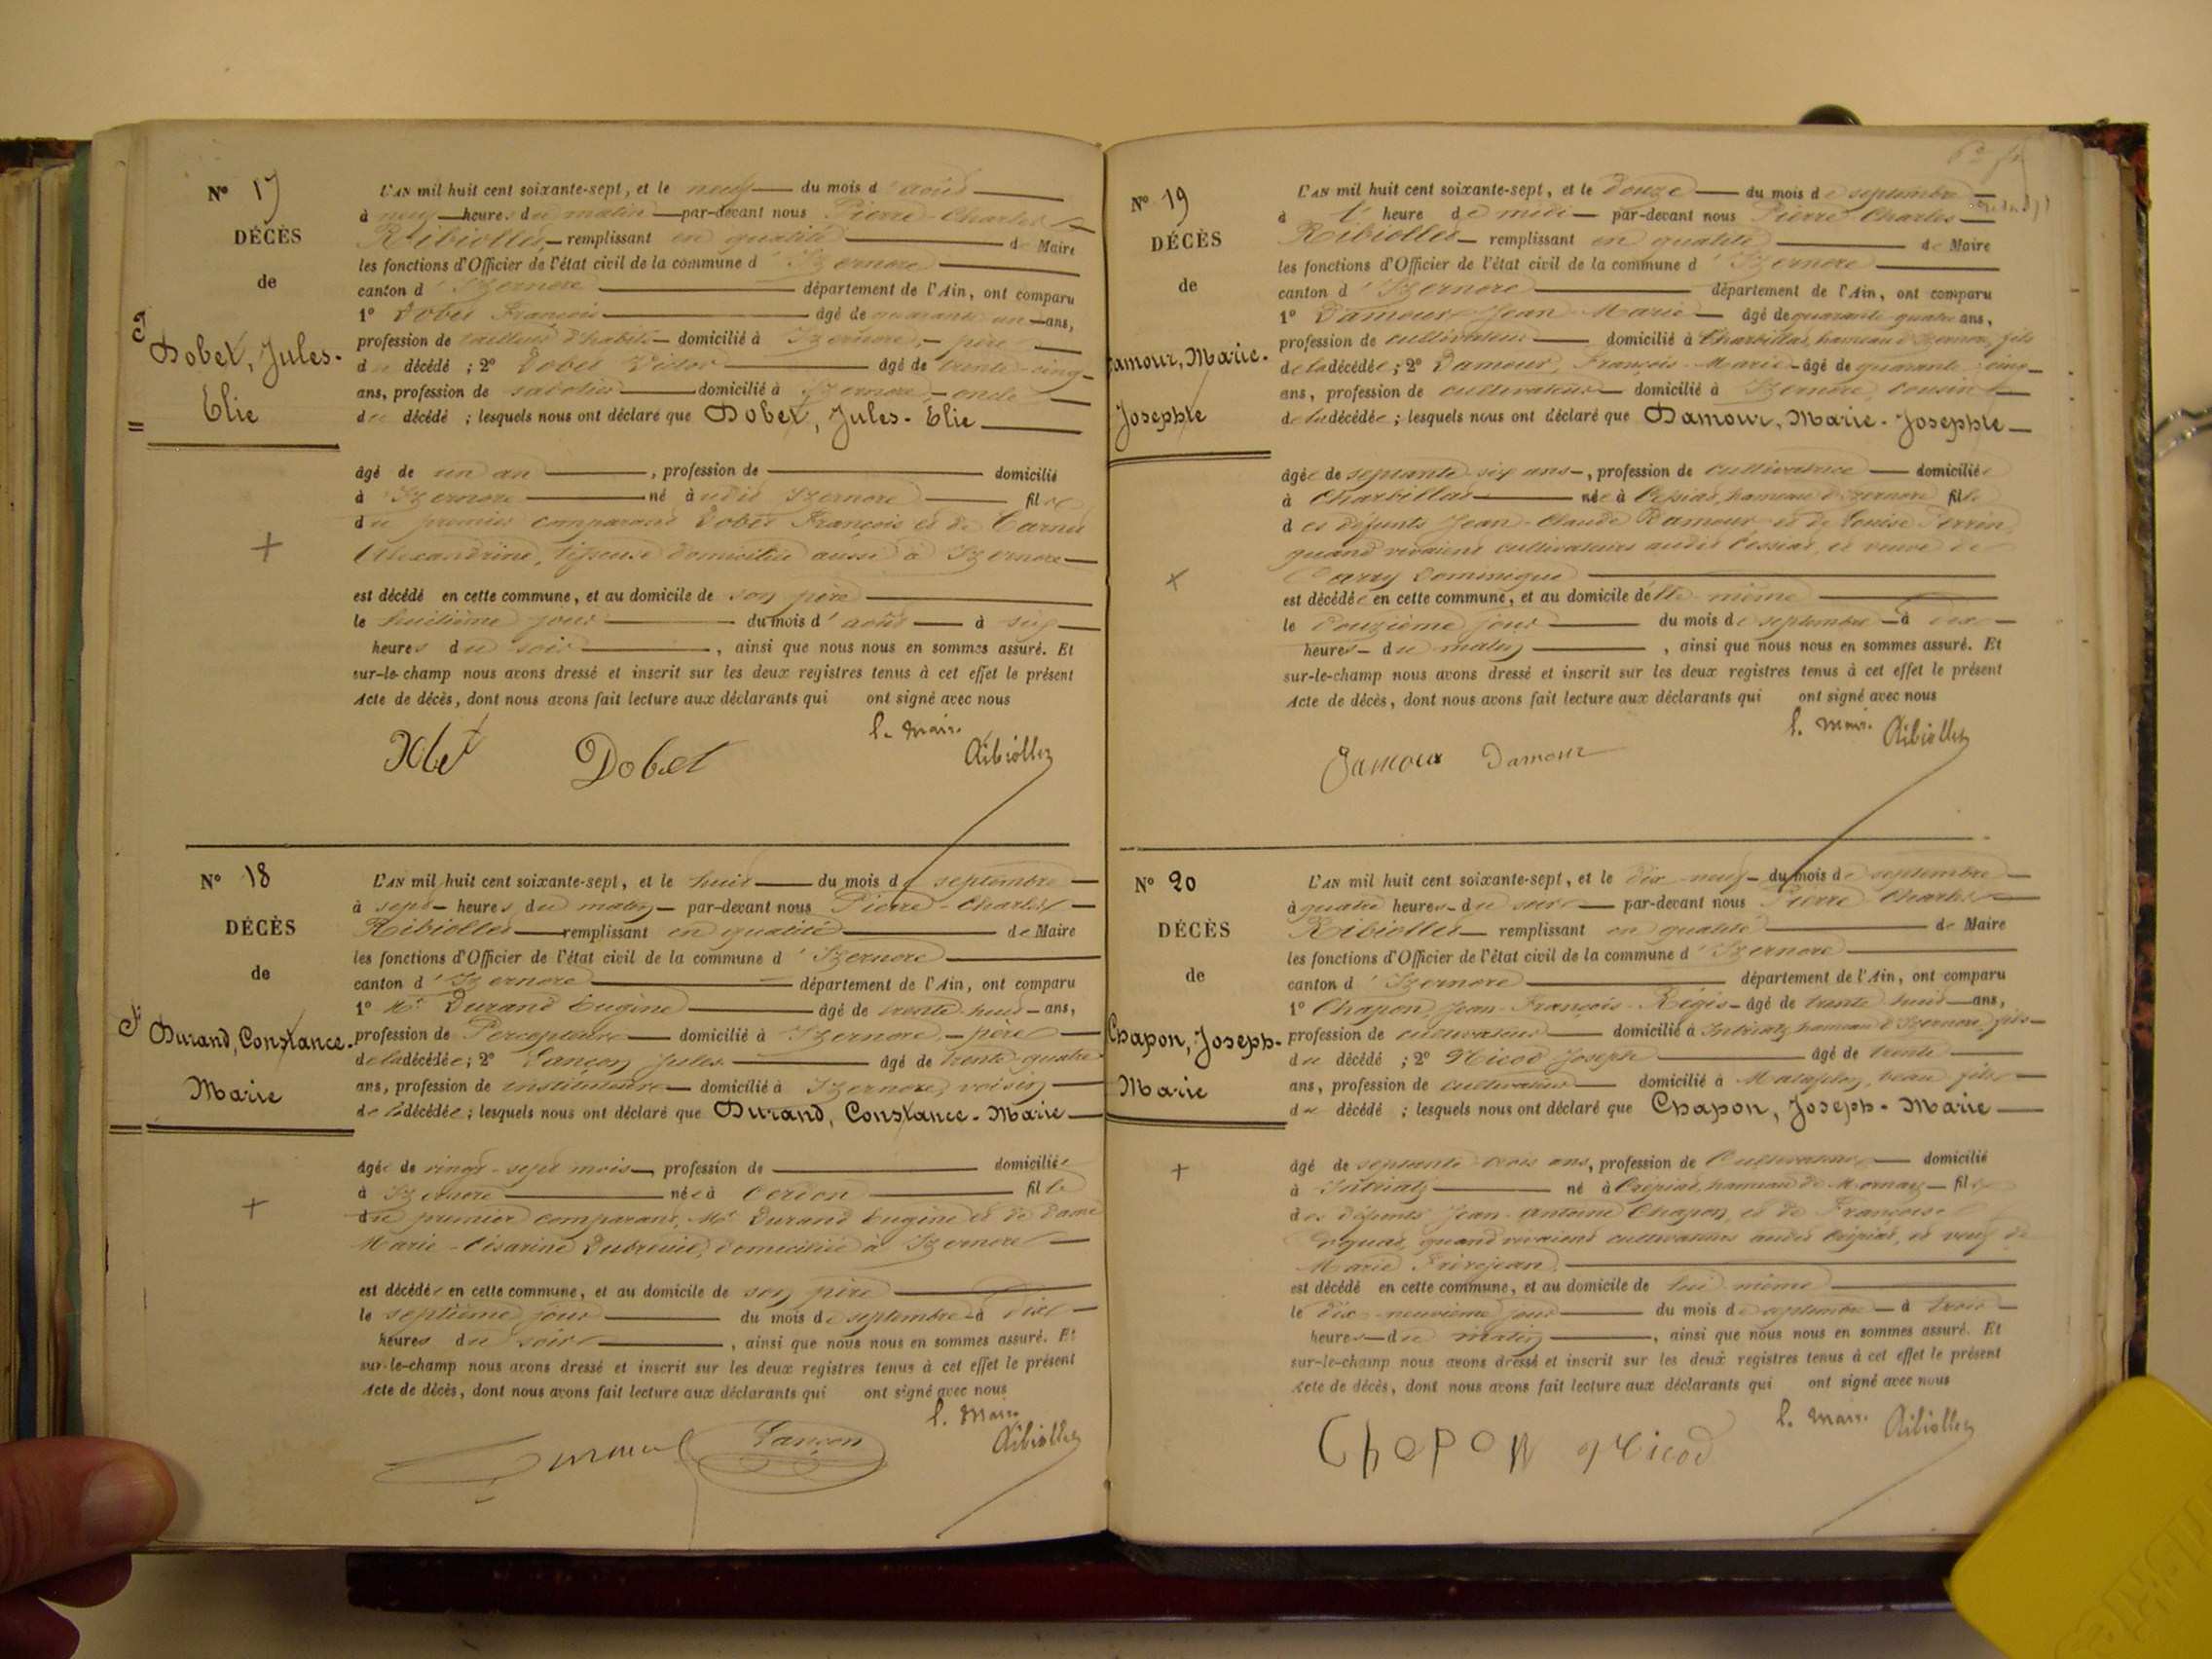 N° 17
DÉCÈS
de
Dobet, Jules-
Elie
L'AN mil huit cent soixante-sept, et le neuf du mois d'août
à neuf heures du matin par-devant nous Pierre-Charles
Ribiollet remplissant en qualité de Maire
les fonctions d'Officier de l'état civil de la commune d'Izernore
canton d'Izernore département de l'Ain, ont comparu
1° Dobet François âgé de quarante un ans,
profession de tailleur d'habits domicilié à Izernore, père
du décédé ; 2° Dobet Victor âgé de trente-cinq
ans, profession de sabotier domicilié à Izernore, oncle
du décédé ; lesquels nous ont déclaré que Dobet, Jules-Elie
âgé de un an, profession de domicilié
à Izernore né à udit Izernore fils
du premier comparant Dobet François et de Carnet
Alexandrine, tisseuse domiciliée aussi à Izernore
est décédé en cette commune, et au domicile de son père
le huitième jour du mois d'août à six
heures du soir, ainsi que nous nous en sommes assuré. Et
sur-le-champ nous avons dressé et inscrit sur les deux registres tenus à cet effet le présent
Acte de décès, dont nous avons fait lecture aux déclarants qui ont signé avec nous
Dobet
l. Mair.
Ribiollet
N° 18
DÉCÈS
de
Durand, Constance-
Marie
L'AN mil huit cent soixante-sept, et le huit du mois de septembre
à sept heures du matin par-devant nous Pierre-Charles
Ribiollet remplissant en qualité de Maire
les fonctions d'Officier de l'état civil de la commune d'Izernore
canton d'Izernore département de l'Ain, ont comparu
1° Mr Durand Eugène âgé de trente-huit ans,
profession de Percepteur domicilié à Izernore, père
de la décédée ; 2° Lançon Jules âgé de trente-quatre
ans, profession de instituteur domicilié à Izernore, voisin
de la décédée ; lesquels nous ont déclaré que Durand, Constance-Marie
âgée de vingt-sept mois, profession de domiciliée
à Izernore née à Cerdon fille
du premier comparant, Mr Durand Eugène et de dame
Marie-Césarine Dubreuil, domiciliée à Izernore
est décédée en cette commune, et au domicile de son père
le septième jour du mois de septembre à dix
heures du soir, ainsi que nous nous en sommes assuré. Et
sur-le-champ nous avons dressé et inscrit sur les deux registres tenus à cet effet le présent
Acte de décès, dont nous avons fait lecture aux déclarants qui ont signé avec nous
Durand Lançon
l. Mair.
Ribiollet
N° 19
DÉCÈS
de
amour, Marie-
Josephte
L'AN mil huit cent soixante-sept, et le douze du mois de septembre
à l' heure de midi par-devant nous Pierre Charles
Ribiollet remplissant en qualité de Maire
les fonctions d'Officier de l'état civil de la commune d'Izernore
canton d'Izernore département de l'Ain, ont comparu
1° Damour Jean-Marie âgé de quarante-quatre ans,
profession de cultivateur domicilié à Charbillat, hameau d'Izernore, fils
de la décédée ; 2° Damour, François-Marie âgé de quarante-cinq
ans, profession de cultivateur domicilié à Izernore, cousin
de la décédée ; lesquels nous ont déclaré que Damour, Marie-Josephte
âgée de septante-six ans, profession de cultivatrice domiciliée
à Charbillat née à Cessiat, hameau d'Izernore fille
des défunts Jean-Claude Damour et de Louise Perrin,
quand vivaient cultivateurs audit Cessiat, et veuve de
Carry Dominique
est décédée en cette commune, et au domicile d'elle-même
le douzième jour du mois de septembre à dix
heures du matin, ainsi que nous nous en sommes assuré. Et
sur-le-champ nous avons dressé et inscrit sur les deux registres tenus à cet effet le présent
Acte de décès, dont nous avons fait lecture aux déclarants qui ont signé avec nous
Damour Damour
l. Mair. Ribiollet
N° 20
DÉCÈS
de
Chapon, Joseph-
Marie
L'AN mil huit cent soixante-sept, et le dix-neuf du mois de septembre
à quatre heures du soir par-devant nous Pierre Charles
Ribiollet remplissant en qualité de Maire
les fonctions d'Officier de l'état civil de la commune d'Izernore
canton d'Izernore département de l'Ain, ont comparu
1° Chapon, Jean-François-Régis âgé de trente-huit ans,
profession de cultivateur domicilié à Intriatz, hameau d'Izernore, fils
du décédé ; 2° Nicod Joseph âgé de trente
ans, profession de cultivateur domicilié à Matafelon, beau-fils
du décédé ; lesquels nous ont déclaré que Chapon, Joseph-Marie
âgé de septante-trois ans, profession de Cultivateur domicilié
à Intriatz né à Crépiat, hameau de Mornay fils
des défunts Jean-Antoine Chapon, et de Françoise
quand vivaient cultivateurs audit Crépiat, et veuf de
Marie Frèrejean
est décédé en cette commune, et au domicile de lui-même
le dix-neuvième jour du mois de septembre à trois
heures du matin, ainsi que nous nous en sommes assuré. Et
sur-le-champ nous avons dressé et inscrit sur les deux registres tenus à cet effet le présent
Acte de décès, dont nous avons fait lecture aux déclarants qui ont signé avec nous
Chapon Nicod
l. Mair. Ribiollet